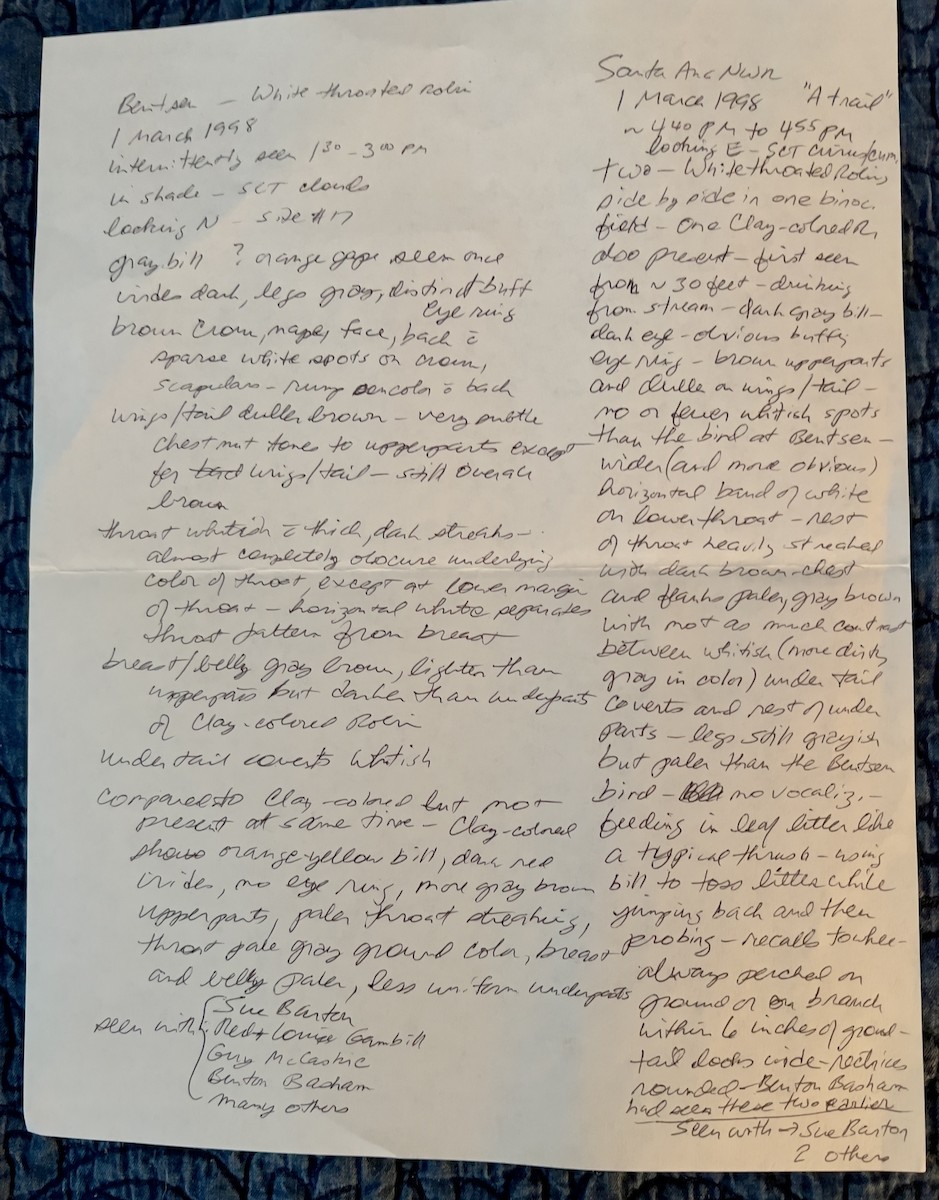 Bentsen – White throated Robin
1 March 1998
intermittently seen 1³⁰ – 3⁰⁰ PM
in shade – SCT clouds
looking N – site #17
gray bill ? orange gape seen once
irides dark, legs gray, distinct buff
eye ring
brown crown, nape, face, back c̄
sparse white spots on crown,
scapulars – rump concolor c̄ back
wings/tail duller brown – very subtle
chestnut tones to upperparts except
for wings/tail – still overall
brown
throat whitish c̄ thick, dark streaks –
almost completely obscure underlying
color of throat, except at lower margin
of throat – horizontal white separates
throat pattern from breast
breast/belly gray brown, lighter than
upperparts but darker than underparts
of Clay-colored Robin
undertail coverts whitish
compared to Clay-colored but not
present at same time – Clay-colored
shows orange-yellow bill, dark red
irides, no eye ring, more gray brown
upperparts, paler throat streaking,
throat pale gray ground color, breast
and belly paler, less uniform underparts
seen with Sue Barton
Red + Louise Gambill
Guy McCaskie
Benton Basham
many others
Santa Ana NWR
1 March 1998 "A trail"
~ 440 PM to 455 PM
looking E – SCT cirrus/cum.
two – White throated Robins
side by side in one binoc.
field – one Clay-colored R.
also present – first seen
from ~ 30 feet – drinking
from stream – dark gray bill –
dark eye – obvious buffy
eye ring – brown upperparts
and duller on wings/tail –
no or fewer whitish spots
than the bird at Bentsen –
wider (and more obvious)
horizontal band of white
on lower throat – rest
of throat heavily streaked
with dark brown – chest
and flanks paler, gray brown
with not as much contrast
between whitish (more dirty
gray in color) under tail
coverts and rest of under
parts – legs still grayish
but paler than the Bentsen
bird – no vocaliz. –
feeding in leaf litter like
a typical thrush – using
bill to toss litter while
jumping back and then
probing – recalls towhee –
always perched on
ground or on branch
within 6 inches of ground –
tail looks wide – rectrices
rounded – Benton Basham
had seen these two earlier
Seen with → Sue Barton
2 others